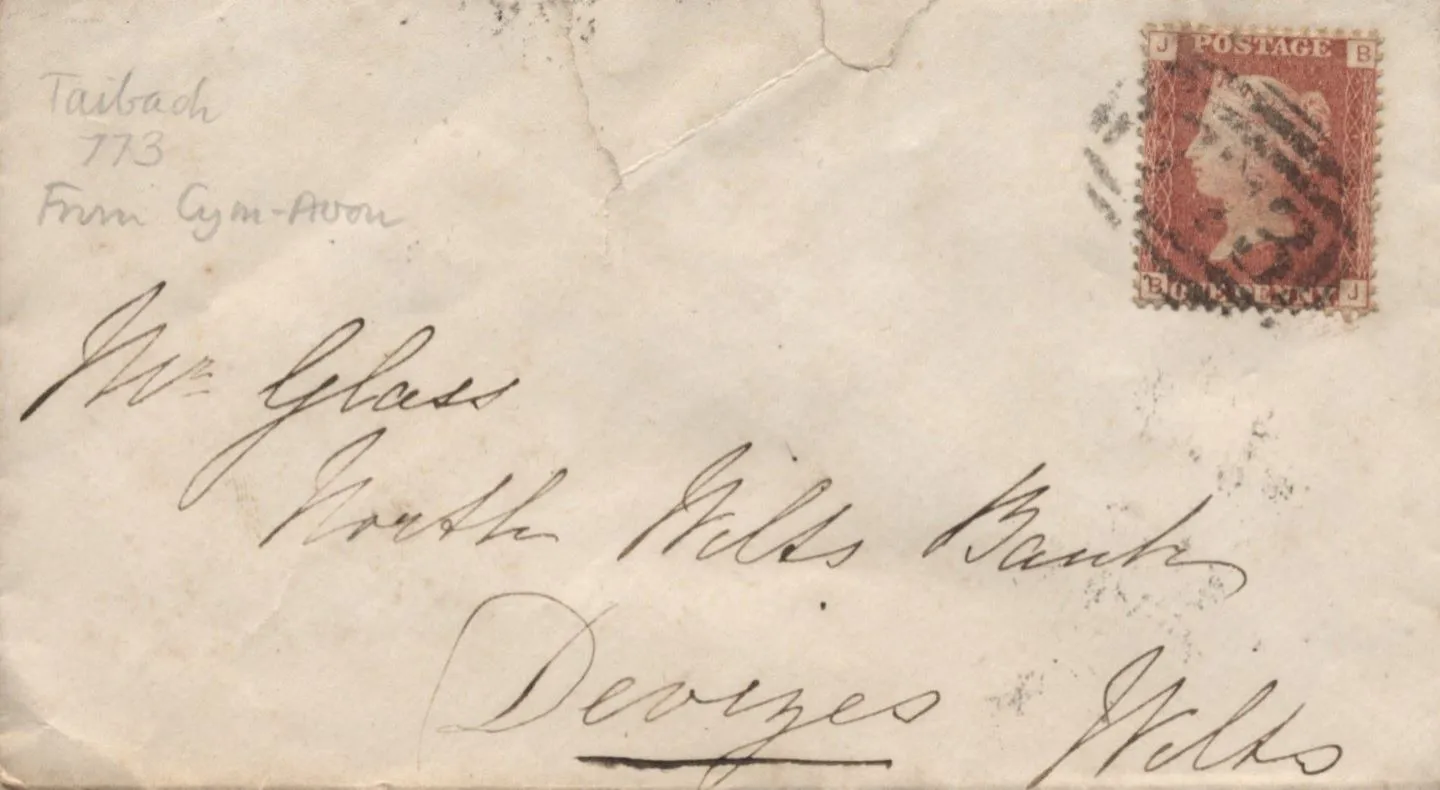 Taibach
773
From Cym-Avon
J POSTAGE B
B ONE PENNY J
Mr Glass
North Wilts Bank
Devizes
Wilts